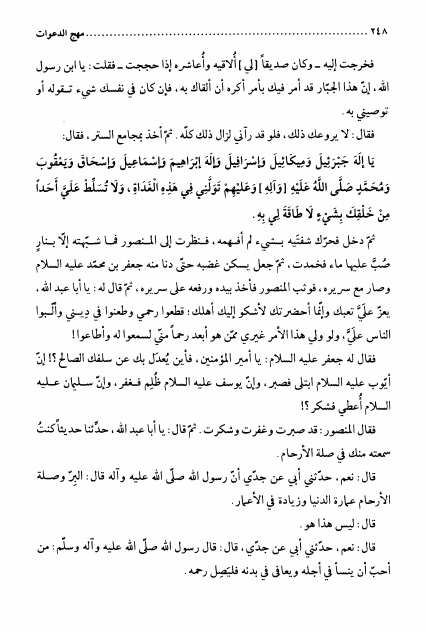 ٢٤٨ ........................................ مهج الدعوات
فخرجت إليه ـ وكان صديقاً [لي] أُلاقيه وأُعاشره إذا حججت ـ فقلت: يا ابن رسول
الله، إنّ هذا الجبّار قد أمر فيك بأمر أكره أن ألقاك به، فإن كان في نفسك شيء تقوله أو
توصيني به.
فقال: لا يروعك ذلك، فلو قد رآني لزال ذلك كلّه. ثمّ أخذ بمجامع الستر، فقال:
يَا إِلَهَ جَبْرَئِيلَ وَمِيكَائِيلَ وَإِسْرَافِيلَ وَإِلَهَ إِبْرَاهِيمَ وَإِسْمَاعِيلَ وَإِسْحَاقَ وَيَعْقُوبَ
وَمُحَمَّدٍ صَلَّى اللهُ عَلَيْهِ [وَآلِهِ] وَعَلَيْهِمْ تَوَلَّنِي فِي هَذِهِ الْغَدَاةِ، وَلَا تُسَلِّطْ عَلَيَّ أَحَداً
مِنْ خَلْقِكَ بِشَيْءٍ لَا طَاقَةَ لِي بِهِ.
ثمّ دخل فحرّك شفتيه بشيء لم أفهمه، فنظرت إلى المنصور فما شبّهته إلّا بنارٍ
صُبَّ عليها ماء فخمدت، ثمّ جعل يسكن غضبه حتّى دنا منه جعفر بن محمّد عليه السلام
وصار مع سريره، فوثب المنصور فأخذ بيده ورفعه على سريره، ثمّ قال له: يا أبا عبد الله،
يعزّ عَلَيَّ تعبك وإنّما أحضرتك لأشكو إليك أهلك؛ قطعوا رحمي وطعنوا في دِيني وألّبوا
الناس عليَّ، ولو ولي هذا الأمر غيري ممّن هو أبعد رحماً منّي لسمعوا له وأطاعوا!
فقال له جعفر عليه السلام: يا أمير المؤمنين، فأين يُعدَل بك عن سلفك الصالح؟! إنّ
أيّوب عليه السلام ابتلى فصبر، وإنّ يوسف عليه السلام ظُلِم فغفر، وإنّ سليمان عليه
السلام أُعطي فشكر؟!
فقال المنصور: قد صبرت وغفرت وشكرت. ثمّ قال: يا أبا عبد الله، حدِّثنا حديثاً كنتُ
سمعته منك في صلة الأرحام.
قال: نعم، حدّثني أبي عن جدّي أنّ رسول الله صلّى الله عليه وآله قال: البِرّ وصلة
الأرحام عمارة الدنيا وزيادة في الأعمار.
قال: ليس هذا هو.
قال: نعم، حدّثني أبي عن جدّي، قال: قال رسول الله صلّى الله عليه وآله وسلّم: من
أحبّ أن ينسأ في أجله ويعافى في بدنه فليَصِل رحمه.